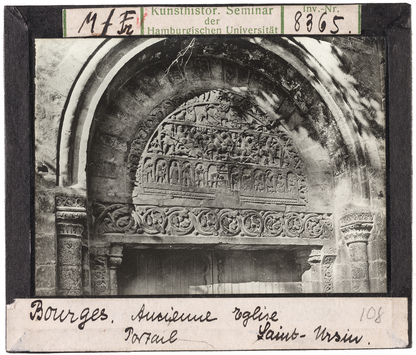 M/Fr
Kunsthistor. Seminar
der
Hamburgischen Universität
Inv.-Nr.
8365.
Bourges. Ancienne Eglise
Portail Saint-Ursin.
108